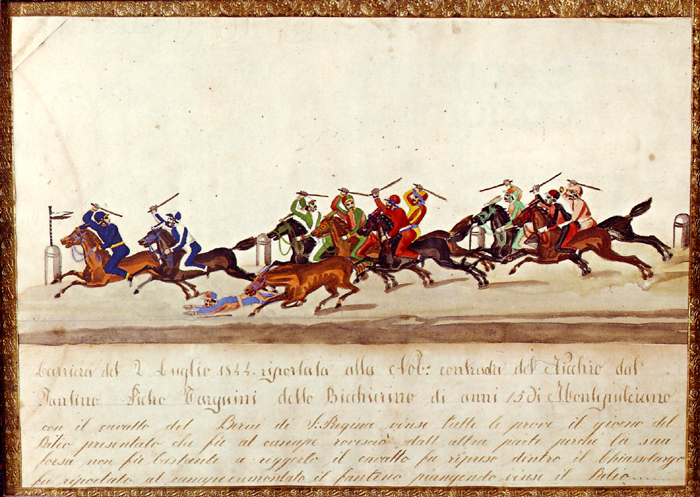 Carriera del 2 Luglio 1844. riportata alla Nob: contrada del Nicchio dal
Fantino Pietro Tarquini detto Bicchierino di anni 15 di Montepulciano
con il cavallo del Berni di S. Regina vinse tutte le prove il giorno del
Palio presentato che fù al canape rovesciò dall altra parte perchè la sua
forsa non fù bastante a reggerlo il cavallo fu ripreso dentro il Chiassolargo
fu riportato al canape rimontato il fantino piangendo vinse il Palio